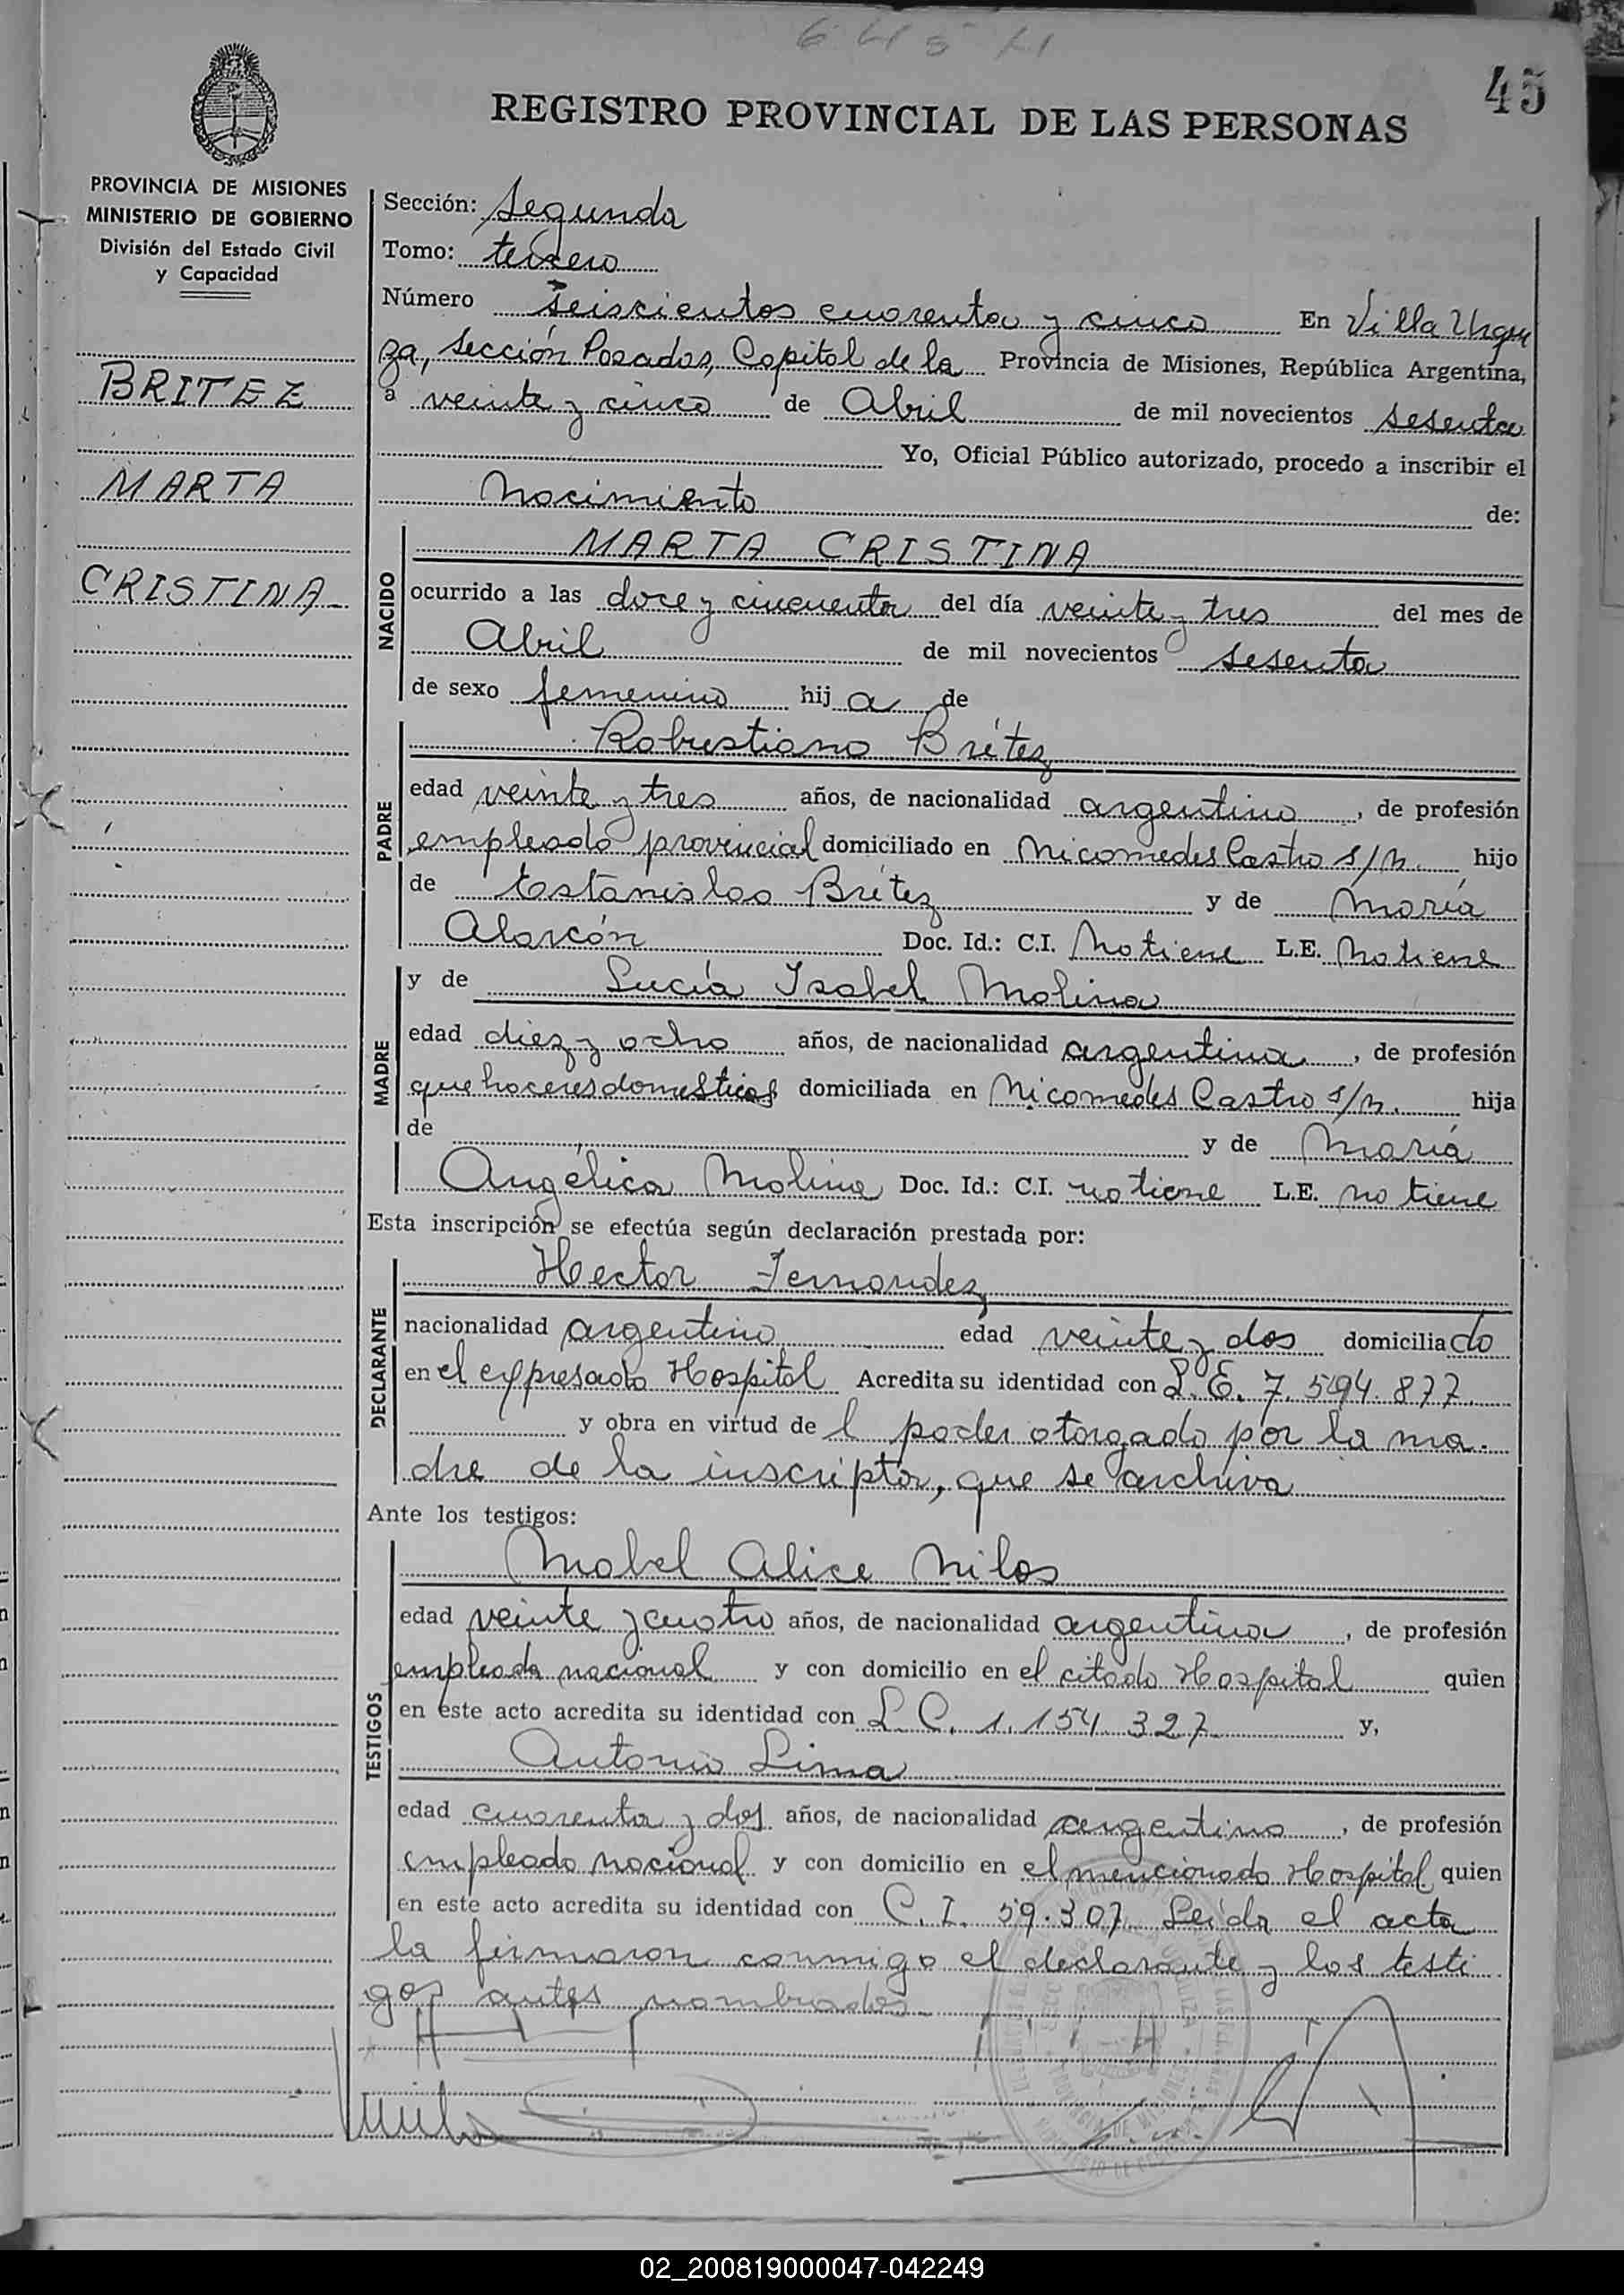 645
45
REGISTRO PROVINCIAL DE LAS PERSONAS
PROVINCIA DE MISIONES
MINISTERIO DE GOBIERNO
División del Estado Civil
y Capacidad
BRITEZ
MARTA
CRISTINA
Sección: Segunda
Tomo: tercero
Número seiscientos cuarenta y cinco En Villa Urqui
za, Sección Posadas, Capital de la Provincia de Misiones, República Argentina,
a veinte y cinco de Abril de mil novecientos sesenta
Yo, Oficial Público autorizado, procedo a inscribir el
Nacimiento de:
NACIDO
MARTA CRISTINA
ocurrido a las doce y cincuenta del día veinte y tres del mes de
Abril de mil novecientos sesenta
de sexo femenino hija de
PADRE
Robustiano Britez
edad veinte y tres años, de nacionalidad argentino, de profesión
empleado provincial domiciliado en Nicomedes Castro s/n. hijo
de Estanislao Britez y de María
Alarcón Doc. Id.: C.I. No tiene L.E. No tiene
MADRE
y de Lucía Isabel Molina
edad diez y ocho años, de nacionalidad argentina, de profesión
quehaceres domesticos domiciliada en Nicomedes Castro s/n. hija
de y de María
Angélica Molina Doc. Id.: C.I. no tiene L.E. no tiene
Esta inscripción se efectúa según declaración prestada por:
DECLARANTE
Hector Fernandez
nacionalidad argentino edad veinte y dos domiciliado
en el expresado Hospital Acredita su identidad con L.E. 7.594.877
y obra en virtud del poder otorgado por la ma-
dre de la inscripta, que se archiva
Ante los testigos:
TESTIGOS
Mabel Alice Milos
edad veinte y cuatro años, de nacionalidad argentina, de profesión
empleada nacional y con domicilio en el citado Hospital quien
en este acto acredita su identidad con L.C. 1.154.327 y,
Antonio Lima
edad cuarenta y dos años, de nacionalidad argentino, de profesión
empleado nacional y con domicilio en el mencionado Hospital quien
en este acto acredita su identidad con C.I. 59.307 Leída el acta
la firmaron conmigo el declarante y los testi
gos antes nombrados
02_200819000047-042249